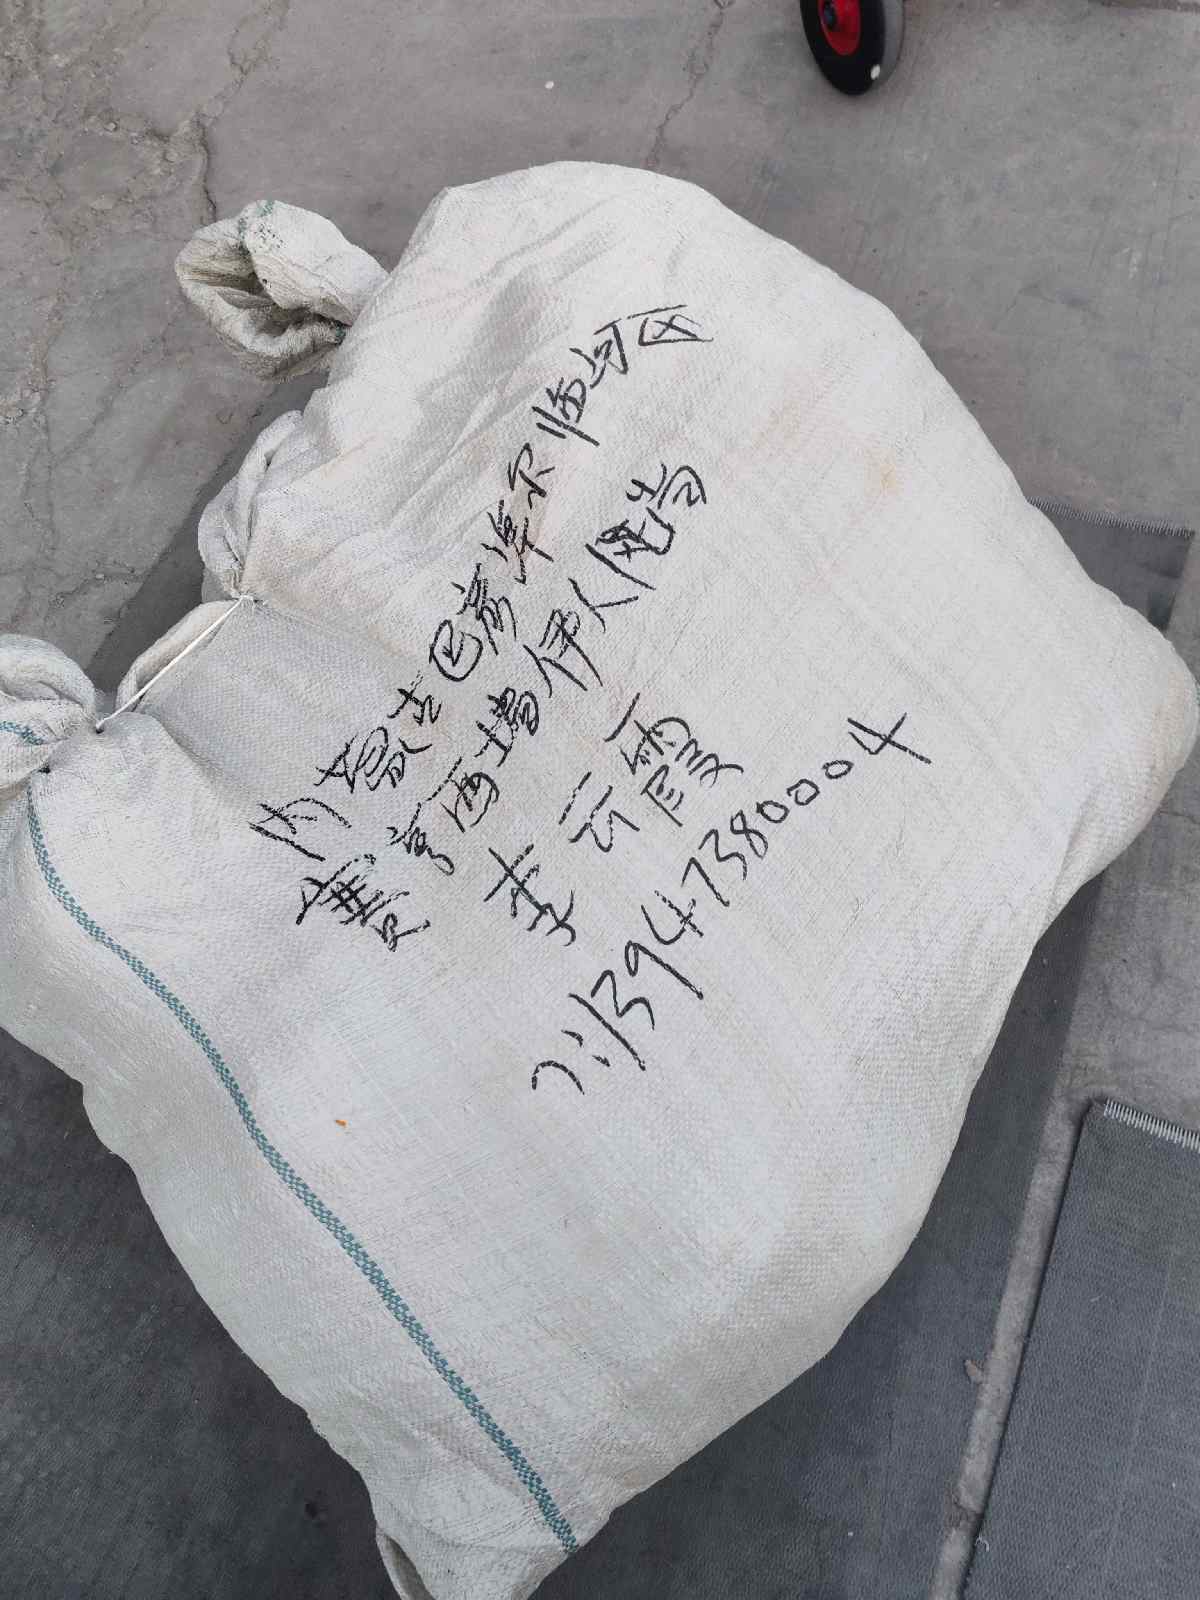 内蒙古巴彦淖尔临河区
富亨西墙伊人隐号
李云霞
7:13947380004